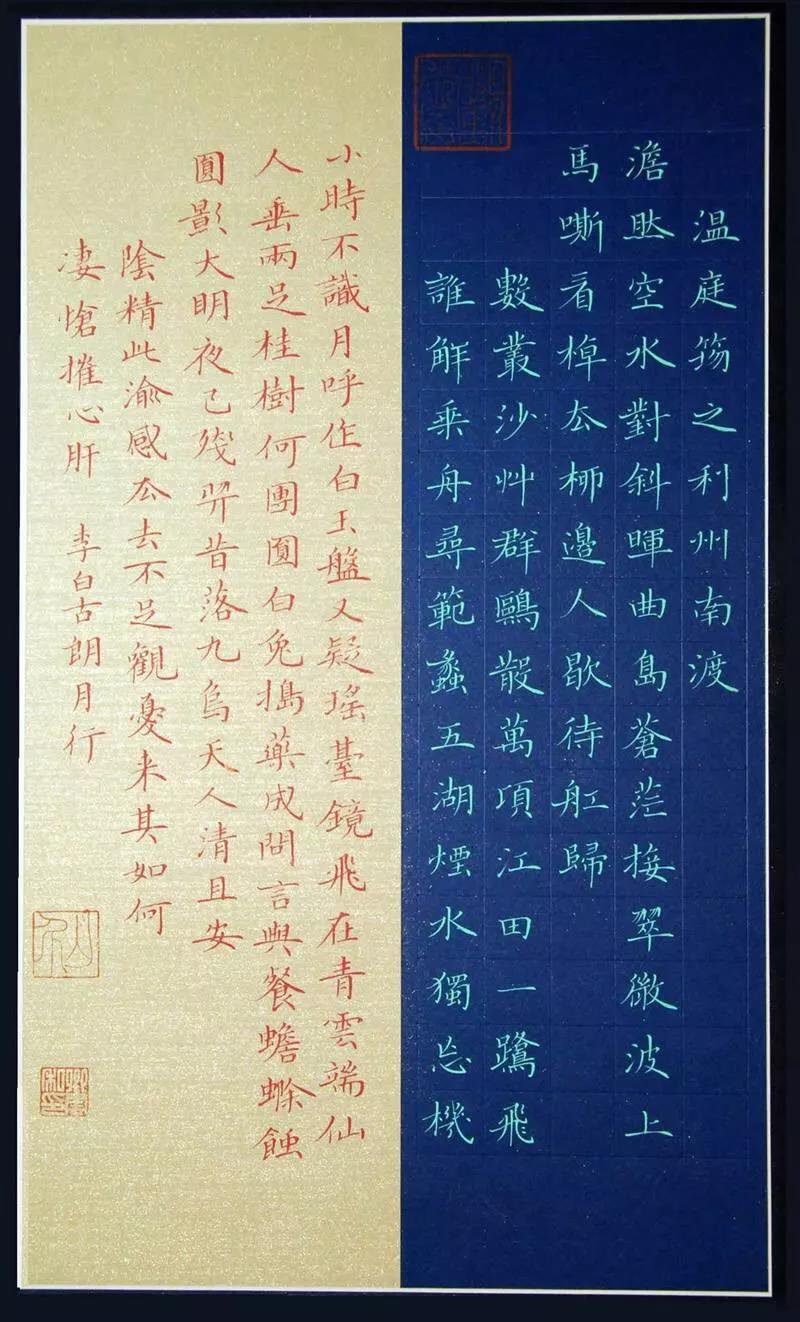 温庭筠之利州南渡
澹然空水對斜暉曲島蒼茫接翠微波上
馬嘶看棹去柳邊人歇待舡歸
數叢沙艸群鷗散萬頃江田一鷺飛
誰解乘舟尋範蠡五湖煙水獨忘機
小時不識月呼作白玉盤又疑瑤臺鏡飛在青雲端仙
人垂兩足桂樹何團圓白兔搗藥成問言與餐蟾蜍蝕
圓影大明夜已殘羿昔落九烏天人清且安
陰精此淪惑去去不足觀憂來其如何
淒愴摧心肝 李白古朗月行